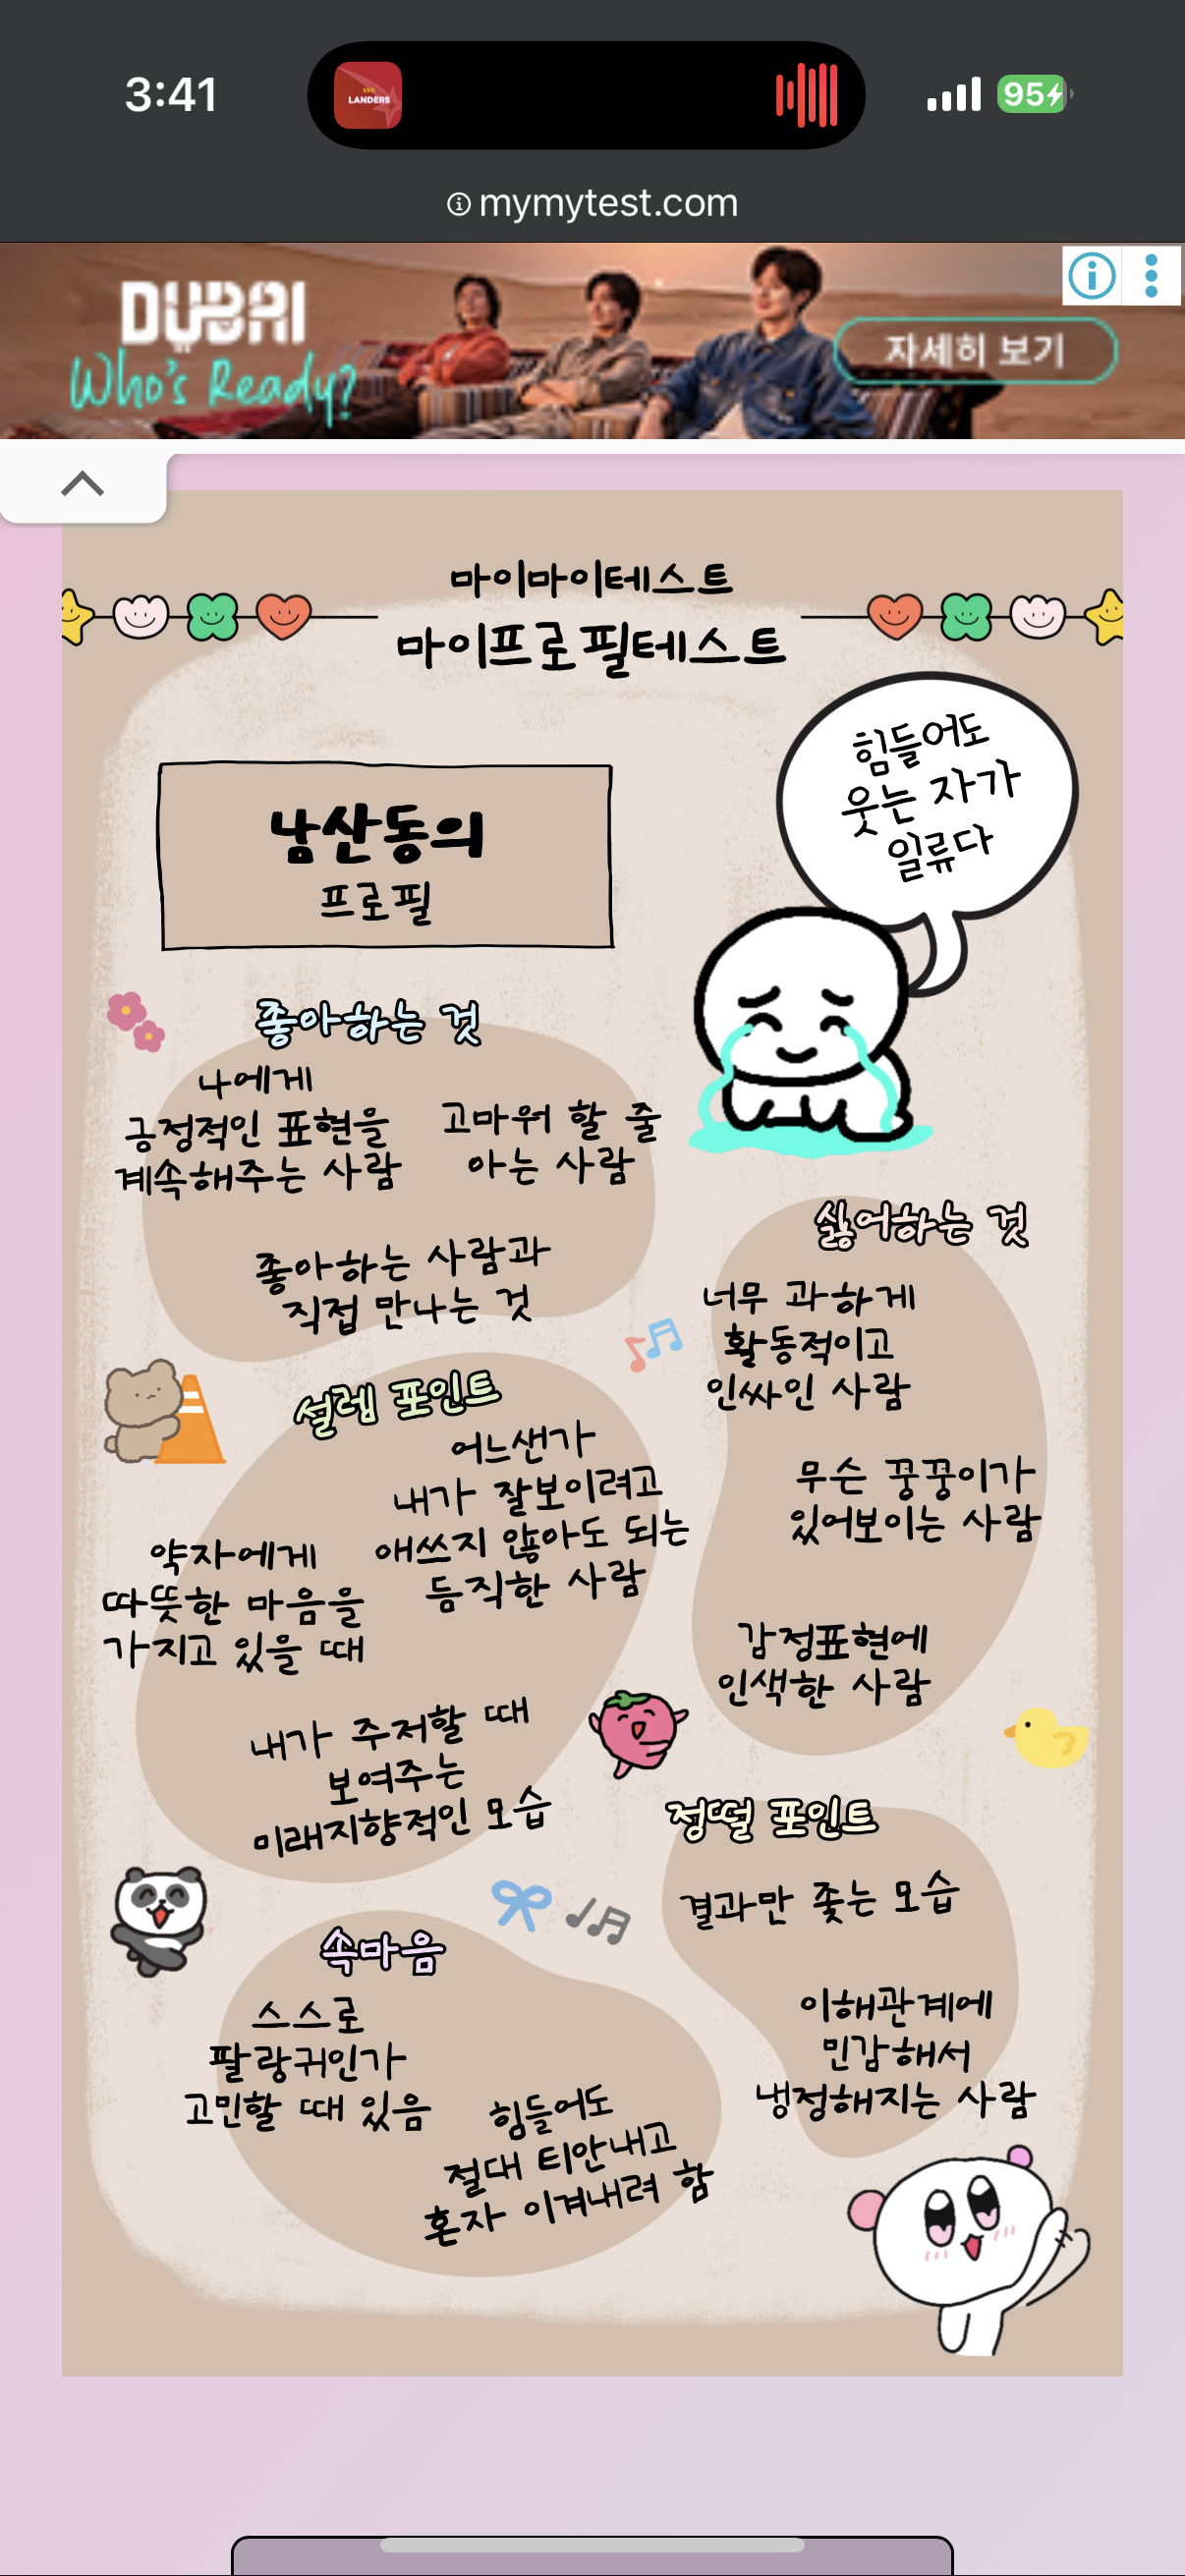 3:41
SSG
LANDERS
95
mymytest.com
DUBAI
Who's Ready?
자세히 보기
마이마이테스트
마이프로필테스트
힘들어도
웃는 자가
일류다
남산동의
프로필
좋아하는 것
나에게
긍정적인 표현을
계속해주는 사람
고마워 할 줄
아는 사람
좋아하는 사람과
직접 만나는 것
싫어하는 것
너무 과하게
활동적이고
인싸인 사람
무슨 꿍꿍이가
있어보이는 사람
감정표현에
인색한 사람
설렘 포인트
어느샌가
내가 잘보이려고
애쓰지 않아도 되는
듬직한 사람
약자에게
따뜻한 마음을
가지고 있을 때
내가 주저할 때
보여주는
미래지향적인 모습
정떨 포인트
결과만 좇는 모습
이해관계에
민감해서
냉정해지는 사람
속마음
스스로
팔랑귀인가
고민할 때 있음
힘들어도
절대 티안내고
혼자 이겨내려 함